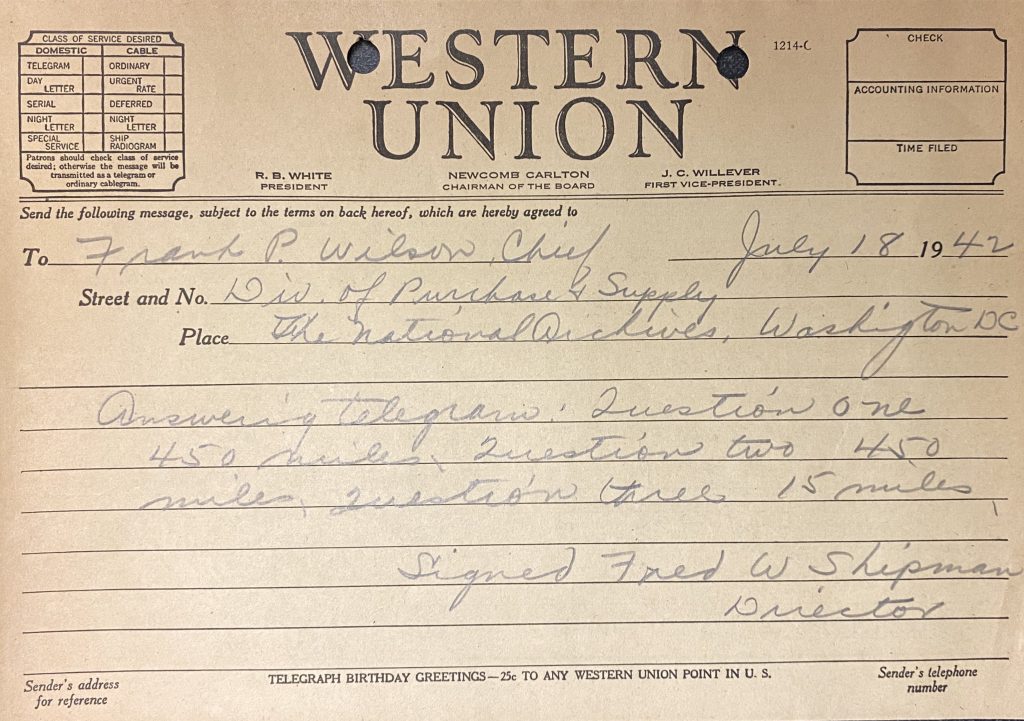 CLASS OF SERVICE DESIRED
DOMESTIC CABLE
TELEGRAM ORDINARY
DAY LETTER URGENT RATE
SERIAL DEFERRED
NIGHT LETTER NIGHT LETTER
SPECIAL SERVICE SHIP RADIOGRAM
Patrons should check class of service
desired; otherwise the message will be
transmitted as a telegram or
ordinary cablegram.
WESTERN
UNION
1214-C
CHECK
ACCOUNTING INFORMATION
TIME FILED
R. B. WHITE
PRESIDENT
NEWCOMB CARLTON
CHAIRMAN OF THE BOARD
J. C. WILLEVER
FIRST VICE-PRESIDENT
Send the following message, subject to the terms on back hereof, which are hereby agreed to
To Frank P. Wilson, Chief July 18 1942
Street and No. Div. of Purchase & Supply
Place The National Archives, Washington DC
Answering telegram. Question one
450 miles. Question two 450
miles. Question three 15 miles.
Signed Fred W Shipman
Director
Sender's address
for reference
TELEGRAPH BIRTHDAY GREETINGS—25c TO ANY WESTERN UNION POINT IN U. S.
Sender's telephone
number